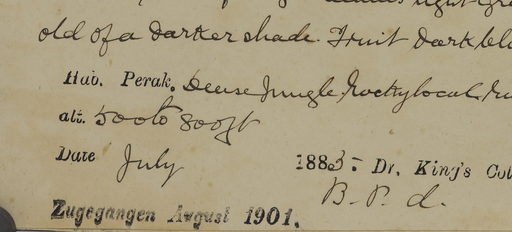 old of a darker shade. Fruit dark
Hab. Perak. Dense jungle, Rocky local
alt. 500 to 800 ft
Date July 1883: Dr. King's Col
B. P. d.
Zugegangen August 1901.